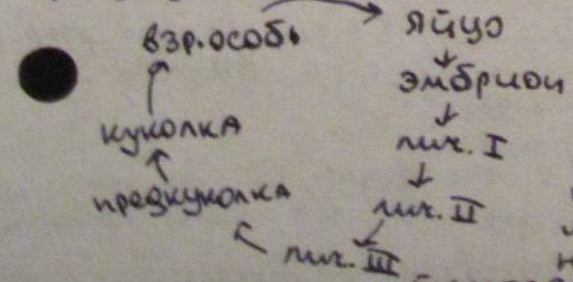 взр.особь → яйцо
↓
эмбрион
↓
лич. I
↓
лич. II
лич. III
предкуколка
куколка